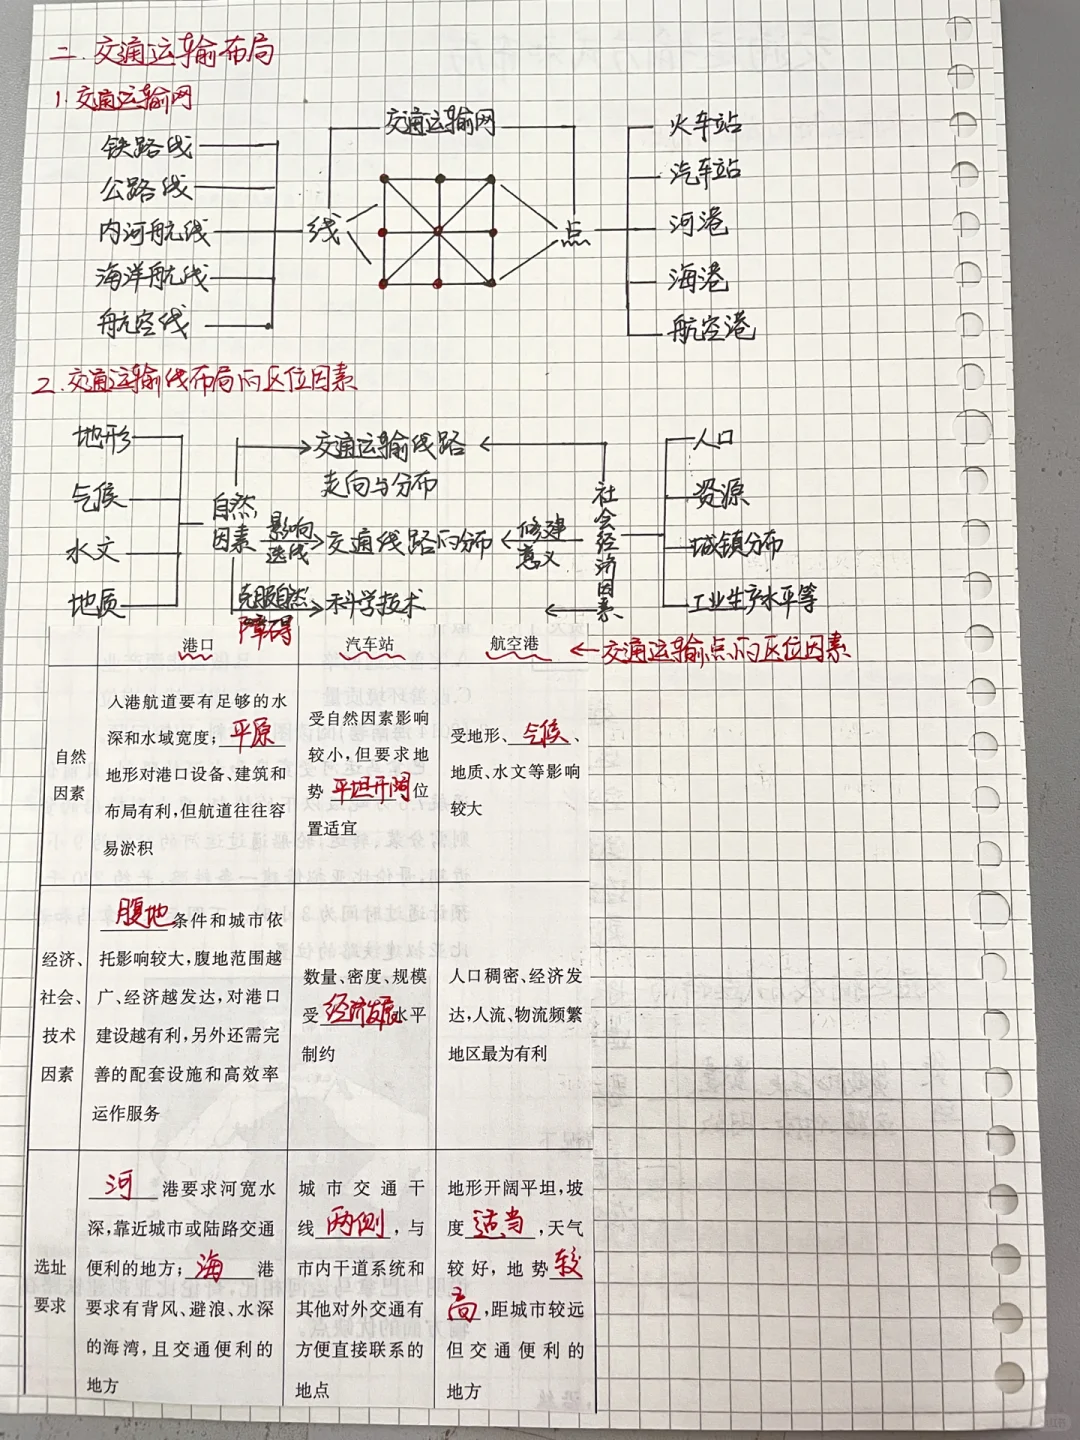 二. 交通运输布局
1. 交通运输网
铁路线
公路线
内河航线
海洋航线
航空线
线
交通运输网
点
火车站
汽车站
河港
海港
航空港
2. 交通运输线布局的区位因素
地形
气候
水文
地质
自然
因素
影响
选线
克服自然
障碍
交通运输线路
走向与分布
交通线路的分布
科学技术
修建
意义
社会经济因素
人口
资源
城镇分布
工业生产水平等
港口
汽车站
航空港
←交通运输点的区位因素
自然
因素
人港航道要有足够的水
深和水域宽度; 平原
地形对港口设备、建筑和
布局有利,但航道往往容
易淤积
受自然因素影响
较小,但要求地
势 平坦开阔 位
置适宜
受地形、气候、
地质、水文等影响
较大
经济、
社会、
技术
因素
腹地 条件和城市依
托影响较大,腹地范围越
广、经济越发达,对港口
建设越有利,另外还需完
善的配套设施和高效率
运作服务
数量、密度、规模
受 经济发展 水平
制约
人口稠密、经济发
达,人流、物流频繁
地区最为有利
选址
要求
河 港要求河宽水
深,靠近城市或陆路交通
便利的地方; 海 港
要求有背风、避浪、水深
的海湾,且交通便利的
地方
城市交通干
线 两侧 ,与
市内干道系统和
其他对外交通有
方便直接联系的
地点
地形开阔平坦,坡
度 适当 ,天气
较好,地势 较
高 ,距城市较远
但交通便利的
地方